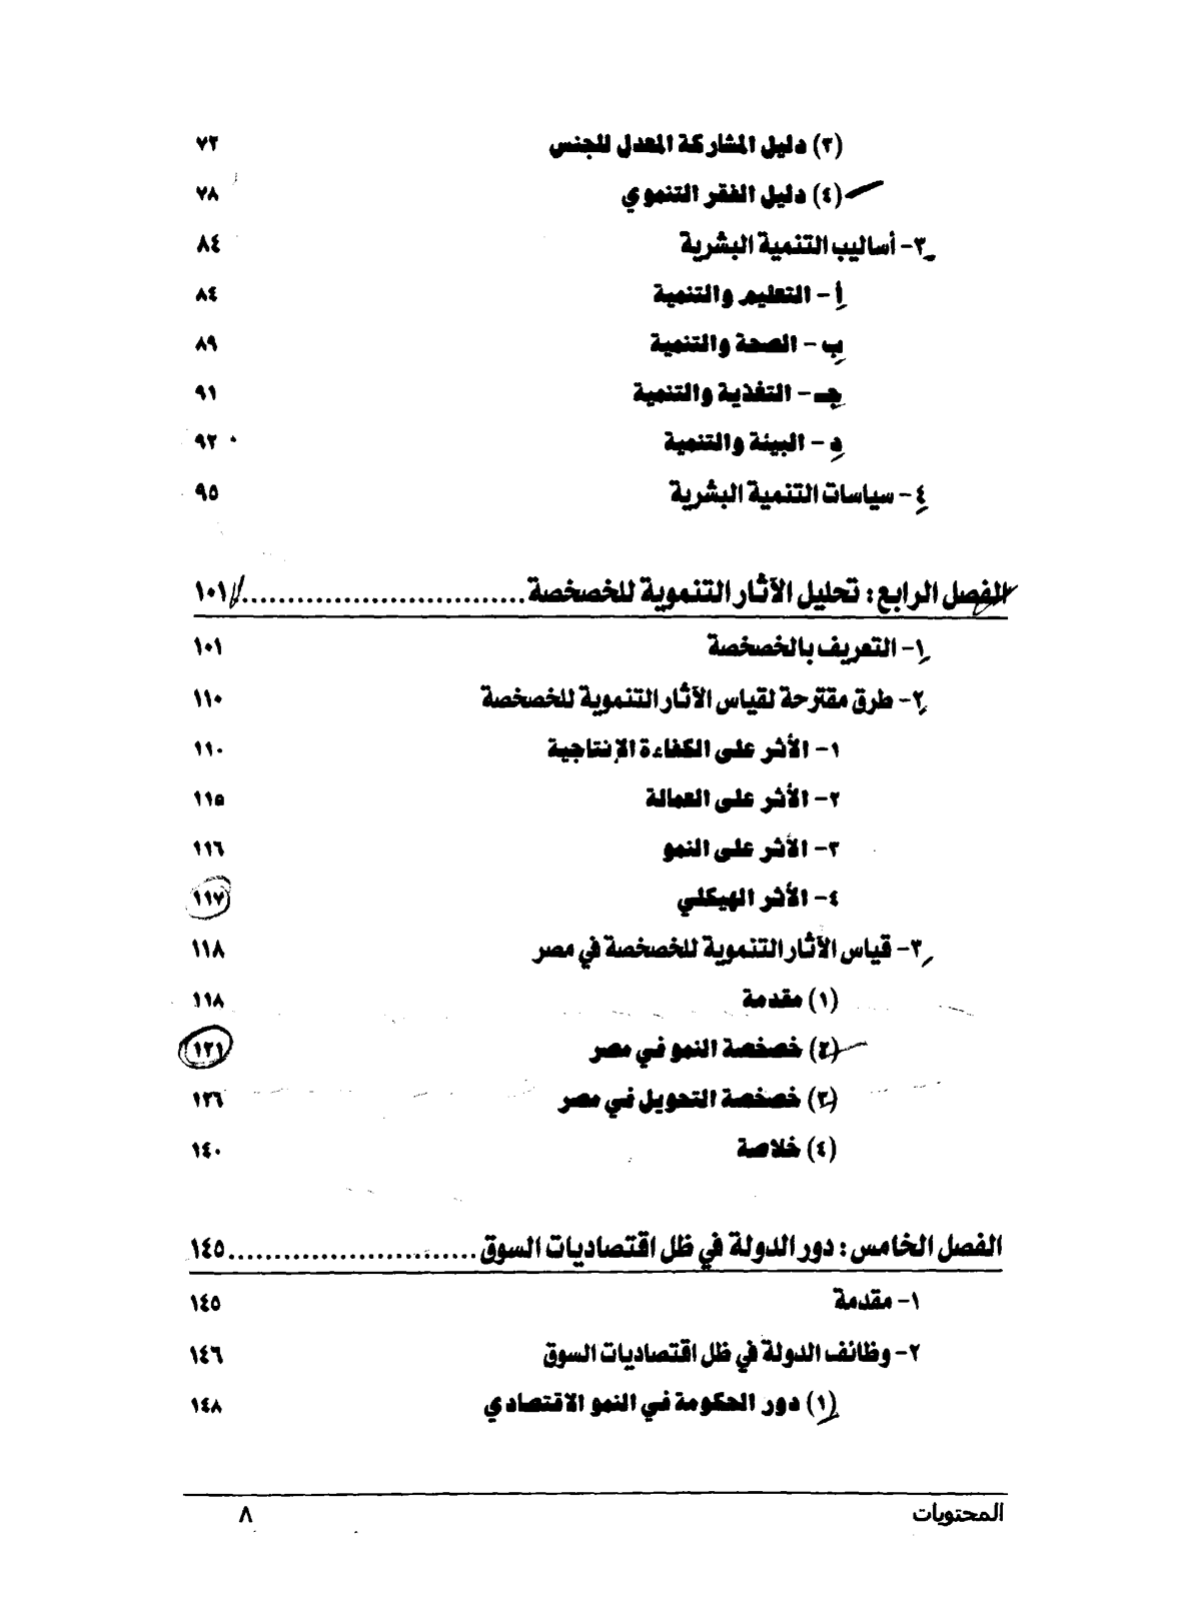 (٣) دليل المشاركة المعدل للجنس ٧٣
(٤) دليل الفقر التنموي ٧٨
٣- أساليب التنمية البشرية ٨٤
أ - التعليم والتنمية ٨٤
ب - الصحة والتنمية ٨٩
جـ - التغذية والتنمية ٩١
د - البيئة والتنمية ٩٢
٤- سياسات التنمية البشرية ٩٥
الفصل الرابع : تحليل الآثار التنموية للخصخصة ............................... ١٠١
١- التعريف بالخصخصة ١٠١
٢- طرق مقترحة لقياس الآثار التنموية للخصخصة ١١٠
١- الأثر على الكفاءة الإنتاجية ١١٠
٢- الأثر على العمالة ١١٥
٣- الأثر على النمو ١١٦
٤- الأثر الهيكلي ١١٧
٣- قياس الآثار التنموية للخصخصة في مصر ١١٨
(١) مقدمة ١١٨
(٢) خصخصة النمو في مصر ١٢١
(٣) خصخصة التحويل في مصر ١٢٦
(٤) خلاصة ١٤٠
الفصل الخامس : دور الدولة في ظل اقتصاديات السوق ........................... ١٤٥
١- مقدمة ١٤٥
٢- وظائف الدولة في ظل اقتصاديات السوق ١٤٦
(١) دور الحكومة في النمو الاقتصادي ١٤٨
المحتويات ٨